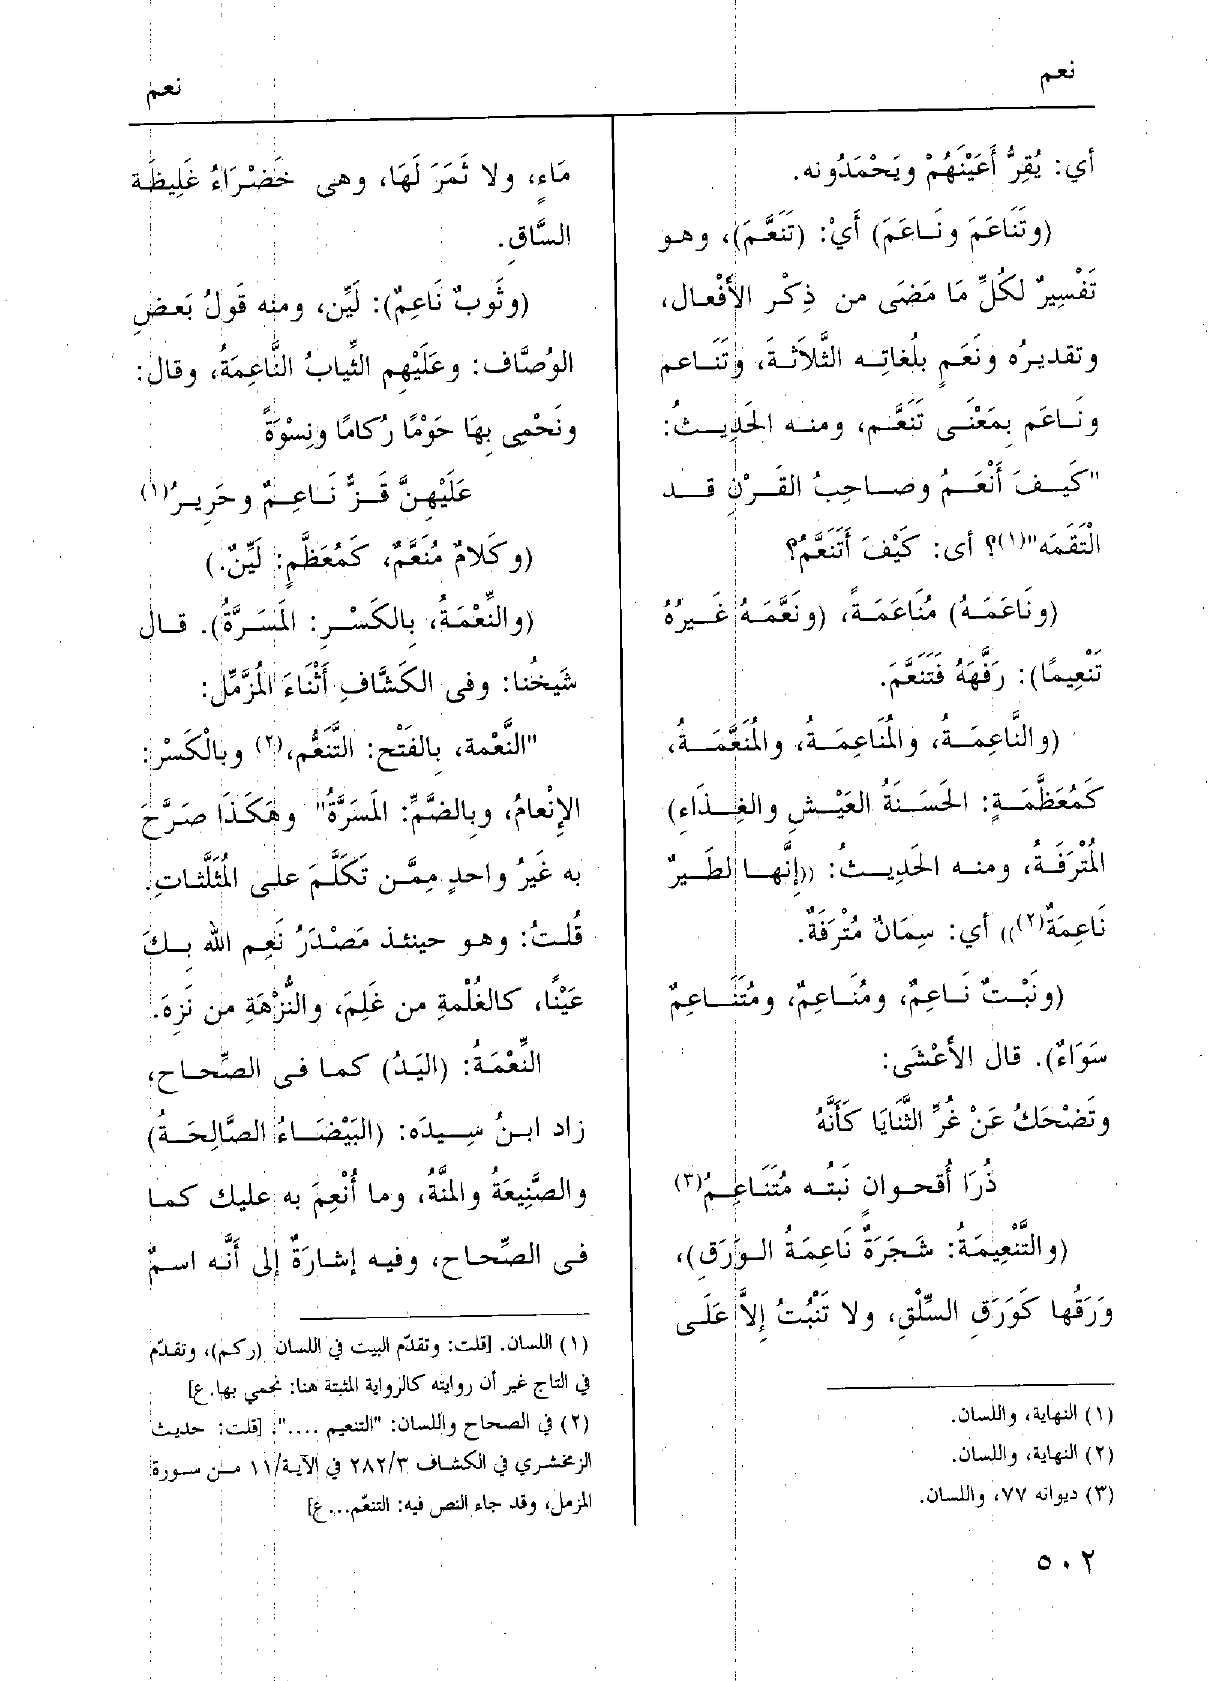 نعم
نعم
أي: يُقِرُّ أَعْيَنَهُمْ ويَحْمَدُونه.
(وتَنَاعَمَ ونَاعَمَ) أَيْ: (تَنَعَّمَ)، وهو
تَفْسِيرٌ لكُلِّ مَا مَضَى من ذِكْر الأَفْعال،
وتقديرُه ونَعَم بلُغاتِه الثَّلاَثةَ، وتَنَاعم
ونَاعَم بِمَعْنَى تَنَعَّم، ومنه الحَدِيثُ:
"كَيفَ أَنْعَمُ وصاحِبُ القَرْنِ قد
الْتَقَمَه"(١)؟ أى: كَيْفَ أَتَنَعَّمُ؟
(ونَاعَمَهُ) مُنَاعَمَةً، (ونَعَّمَهُ غَيرُهُ
تَنْعِيمًا): رَفَّهَهُ فَتَنَعَّمَ.
(والنَّاعِمَةُ، والمُنَاعِمَةُ، والمُنَعَّمَةُ،
كَمُعَظَّمَةٍ: الحَسَنَةُ العَيْشِ والغِذَاءِ)
المُتْرَفَةُ، ومنه الحَدِيثُ: ((إِنَّها لَطَيرٌ
نَاعِمَةٌ(٢))) أي: سِمَانٌ مُتْرَفَةٌ.
(ونَبْتٌ نَاعِمٌ، ومُنَاعِمٌ، ومُتَنَاعِمٌ
سَوَاءٌ). قال الأَعْشَى:
وتَضْحَكُ عَنْ غُرِّ الثَّنَايَا كَأَنَّهُ
ذُرَا أُقحوانٍ نَبتُه مُتَنَاعِمُ(٣)
(والتَّنْعِيمَةُ: شَجَرَةٌ نَاعِمَةُ الوَرَقِ)،
وَرَقُها كَوَرَقِ السِّلْقِ، ولا تَنْبُتُ إِلاَّ عَلَى
(١) النهاية، واللسان.
(٢) النهاية، واللسان.
(٣) ديوانه ٧٧، واللسان.
٥٠٢
مَاءٍ، ولا ثَمَرَ لَهَا، وهى خَضْرَاءُ غَلِيظَة
السَّاقِ.
(وثَوبٌ نَاعِمٌ): لَيِّن، ومنه قَولُ بَعضِ
الوُصَّاف: وعَلَيْهِم الثِّيابُ النَّاعِمَةُ، وقال:
ونَحْمِى بِهَا حَوْمًا رُكَامًا ونِسْوَةً
عَلَيْهِنَّ قَزٌّ نَاعِمٌ وحَرِيرُ(١)
(وكَلامٌ مُنَعَّمٌ، كَمُعَظَّمٍ: لَيِّنٌ.)
(والنِّعْمَةُ، بالكَسْرِ: المَسَرَّةُ). قال
شَيخُنا: وفى الكَشَّافِ أَثْنَاءَ المُزَّمِّل:
"النَّعْمة، بالفَتْح: التَّنَعُّم،(٢) وبالْكَسْرِ:
الإِنْعامُ، وبِالضَّمِّ: المَسَرَّةُ" وهَكَذَا صَرَّحَ
به غَيرُ واحدٍ مِمَّن تَكَلَّمَ على المُثَلَّثاتِ.
قُلتُ: وهو حينئذ مَصْدَرُ نَعِم الله بِكَ
عَيْنًا، كالغُلْمةِ من غَلِمَ، والنُّزْهَةِ من نَزِهَ.
النِّعْمَةُ: (اليَدُ) كما فى الصِّحاح،
زاد ابنُ سِيدَه: (البَيْضَاءُ الصَّالِحَةُ)
والصَّنِيعَةُ والمنَّةُ، وما أُنْعِمَ به عليك كما
فى الصِّحاح، وفيه إشارَةٌ إلى أَنَّه اسمٌ
(١) اللسان. [قلت: وتقدّم البيت في اللسان (ركم)، وتقدّم
في التاج غير أن روايته كالرواية المثبتة هنا: نحمي بها. ع]
(٢) في الصحاح واللسان: "التنعيم ....". [قلت: حديث
الزمخشري في الكشاف ٢٨٢/٣ في الآية/١١ من سورة
المزمل، وقد جاء النص فيه: التنعّم... ع]